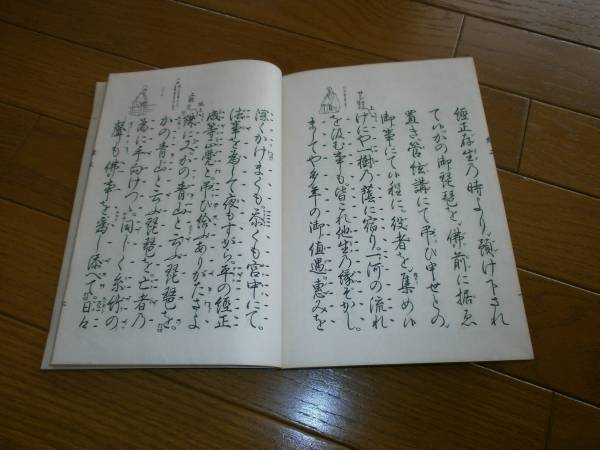 經正存生の時より。預け下され
ていかの御琵琶を。佛前に据ゑ
置き管絃講にて弔ひ申せとの。
御事にてい程に。役者を集めい
げにや一樹の蔭に宿り。一河の流れ
を汲む事も。皆これ他生の縁ぞかし。
ましてや多年の御値遇。恵みを
深くかけまくも。忝くも宮中にて。
法事を為して夜もすがら。平の經正
成等正覺と。弔ひ給ふありがたさよ
殊にまたかの青山と云ふ琵琶を。
かの青山と云ふ琵琶を。亡者の
為に手向けつゝ。同じく糸竹の
聲も佛事を為し添へて。日々